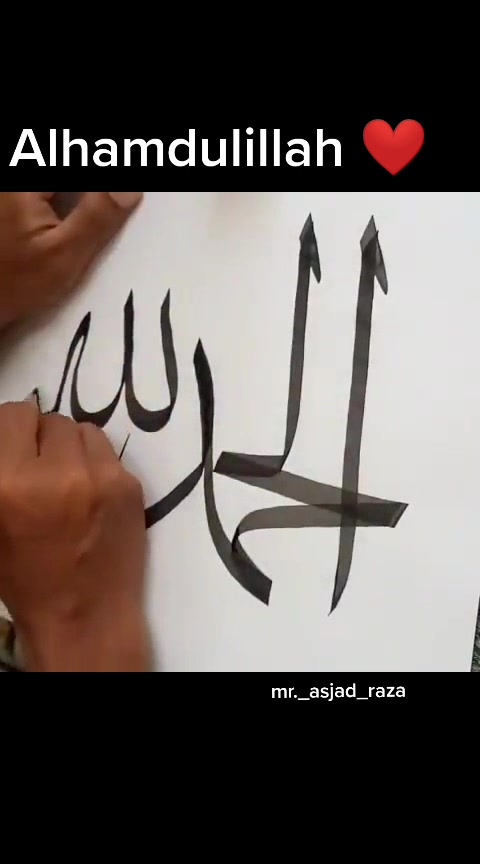 Alhamdulillah ❤️
الحمد لله
mr._asjad_raza